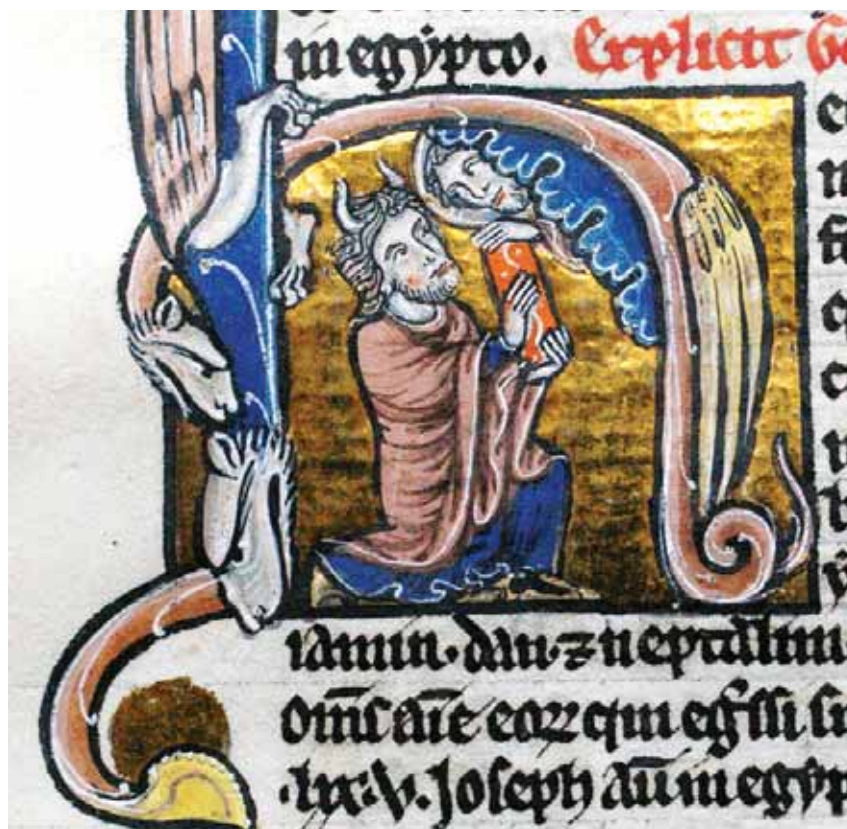 in egypto. Explicit Ge
iamin·dan·⁊ neptalim·
om̄s aīe eoꝝ qui eg̃ssi
·lxx·v. Joseph aū in egyp